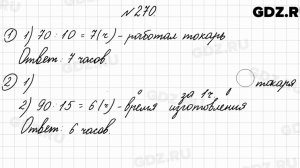 GDZ.RU
№ 270.
① 1) 70 · 10 = 7(ч) - работал токарь
Ответ: 7 часов.
② 1) токаря
за 1 ч. в
2) 90 · 15 = 6(ч) - время изготовления
Ответ: 6 часов.